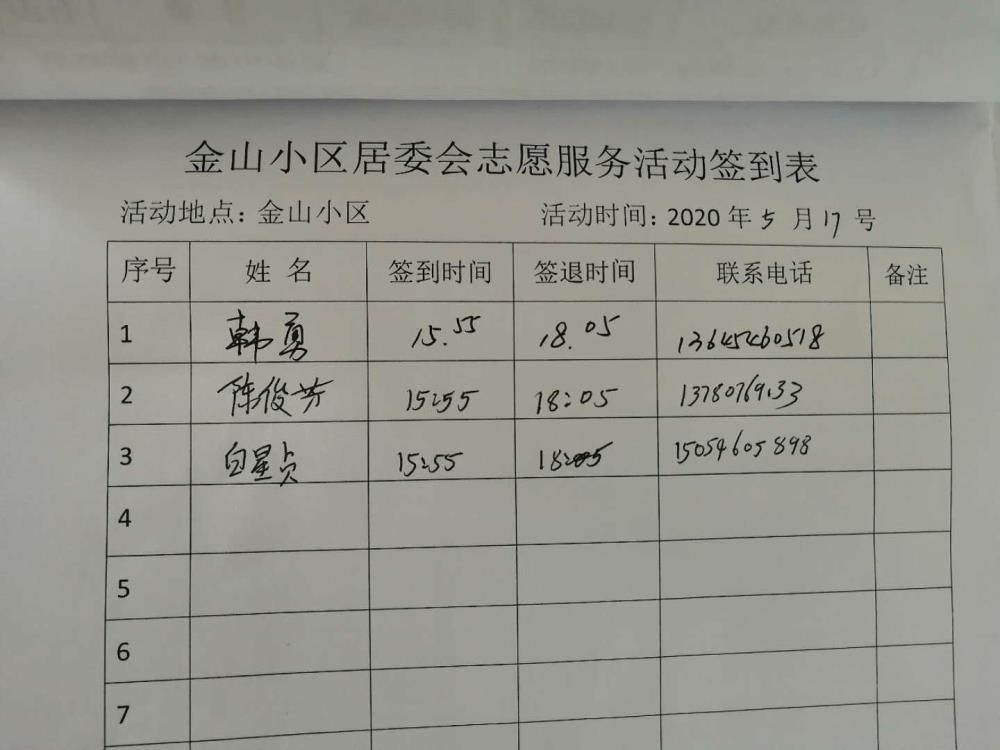 金山小区居委会志愿服务活动签到表
活动地点：金山小区 活动时间：2020年5月17号
序号 姓名 签到时间 签退时间 联系电话 备注
1 韩勇 15.55 18.05 13645460518
2 陈俊芳 15:55 18:05
3 白星贞 15:55 18:05 15054605898
4
5
6
7